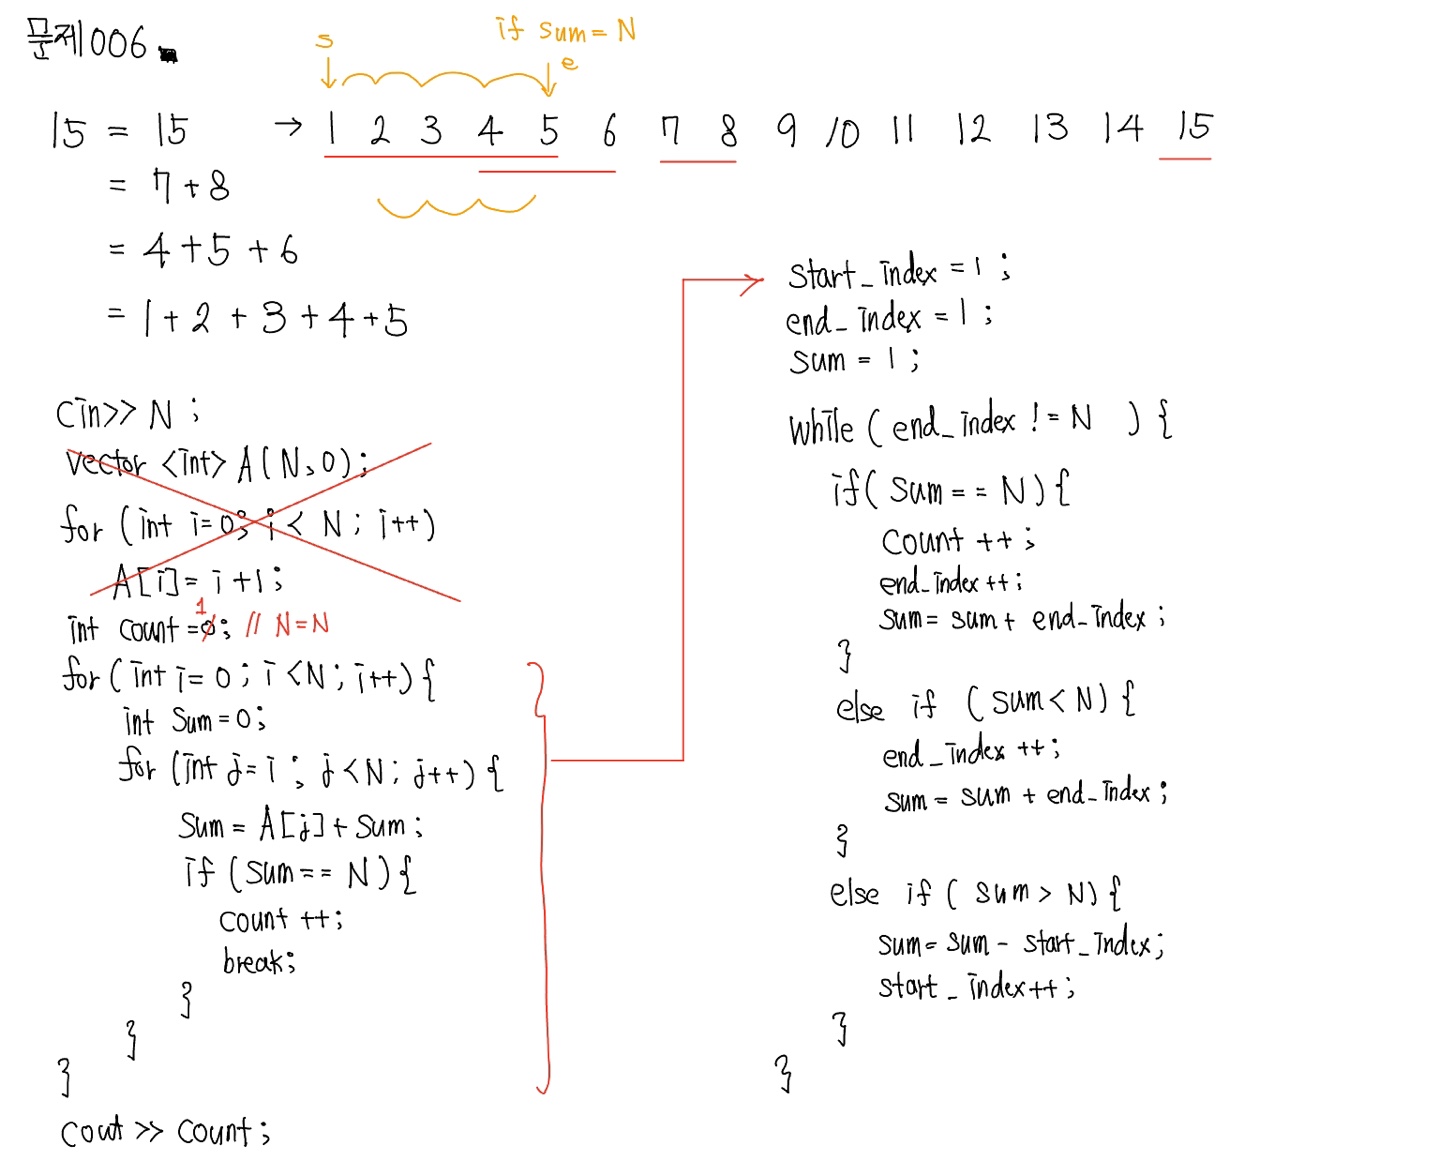 문제006.
if sum = N
s
e
15 = 15 → 1 2 3 4 5 6 7 8 9 10 11 12 13 14 15
= 7+8
= 4+5+6
= 1+2+3+4+5
cin>> N ;
vector <int> A(N,0);
for (int i=0; i < N ; i++)
A[i]= i+1;
1
int count =0; // N=N
for (int i=0; i<N; i++){
int sum=0;
for (int j=i ; j<N; j++) {
sum = A[j]+sum;
if (sum== N){
count ++;
break;
}
}
}
cout >> count;
start_index =1 ;
end_index =1 ;
sum = 1 ;
while ( end_index != N ) {
if( sum == N){
count ++ ;
end_index ++;
sum= sum+ end_index ;
}
else if (sum< N) {
end_index ++;
sum= sum + end_index ;
}
else if ( sum > N) {
sum= sum - start_index;
start_index++;
}
}